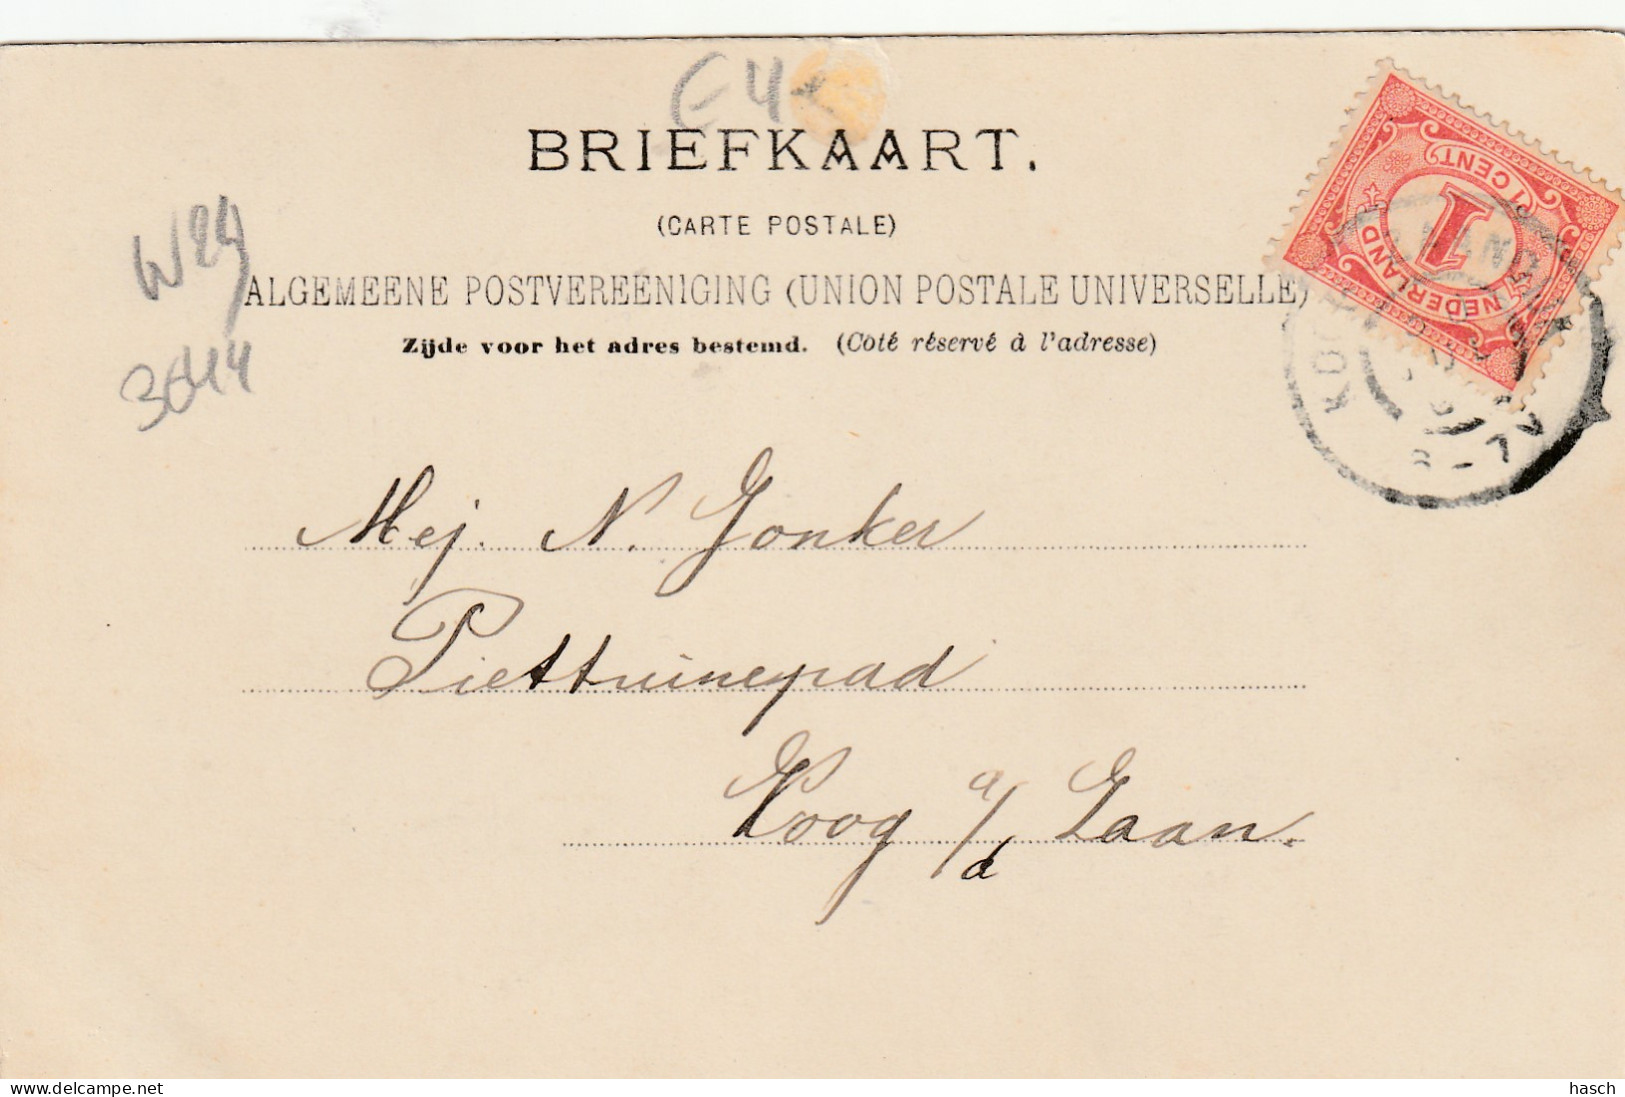 € 4
BRIEFKAART.
(CARTE POSTALE)
W29
3644
ALGEMEENE POSTVEREENIGING (UNION POSTALE UNIVERSELLE)
Zijde voor het adres bestemd. (Côté réservé à l'adresse)
1 CENT
1
NEDERLAND
Mej. N. Jonker
Piettruinepad
Koog a/d Zaan.
hasch